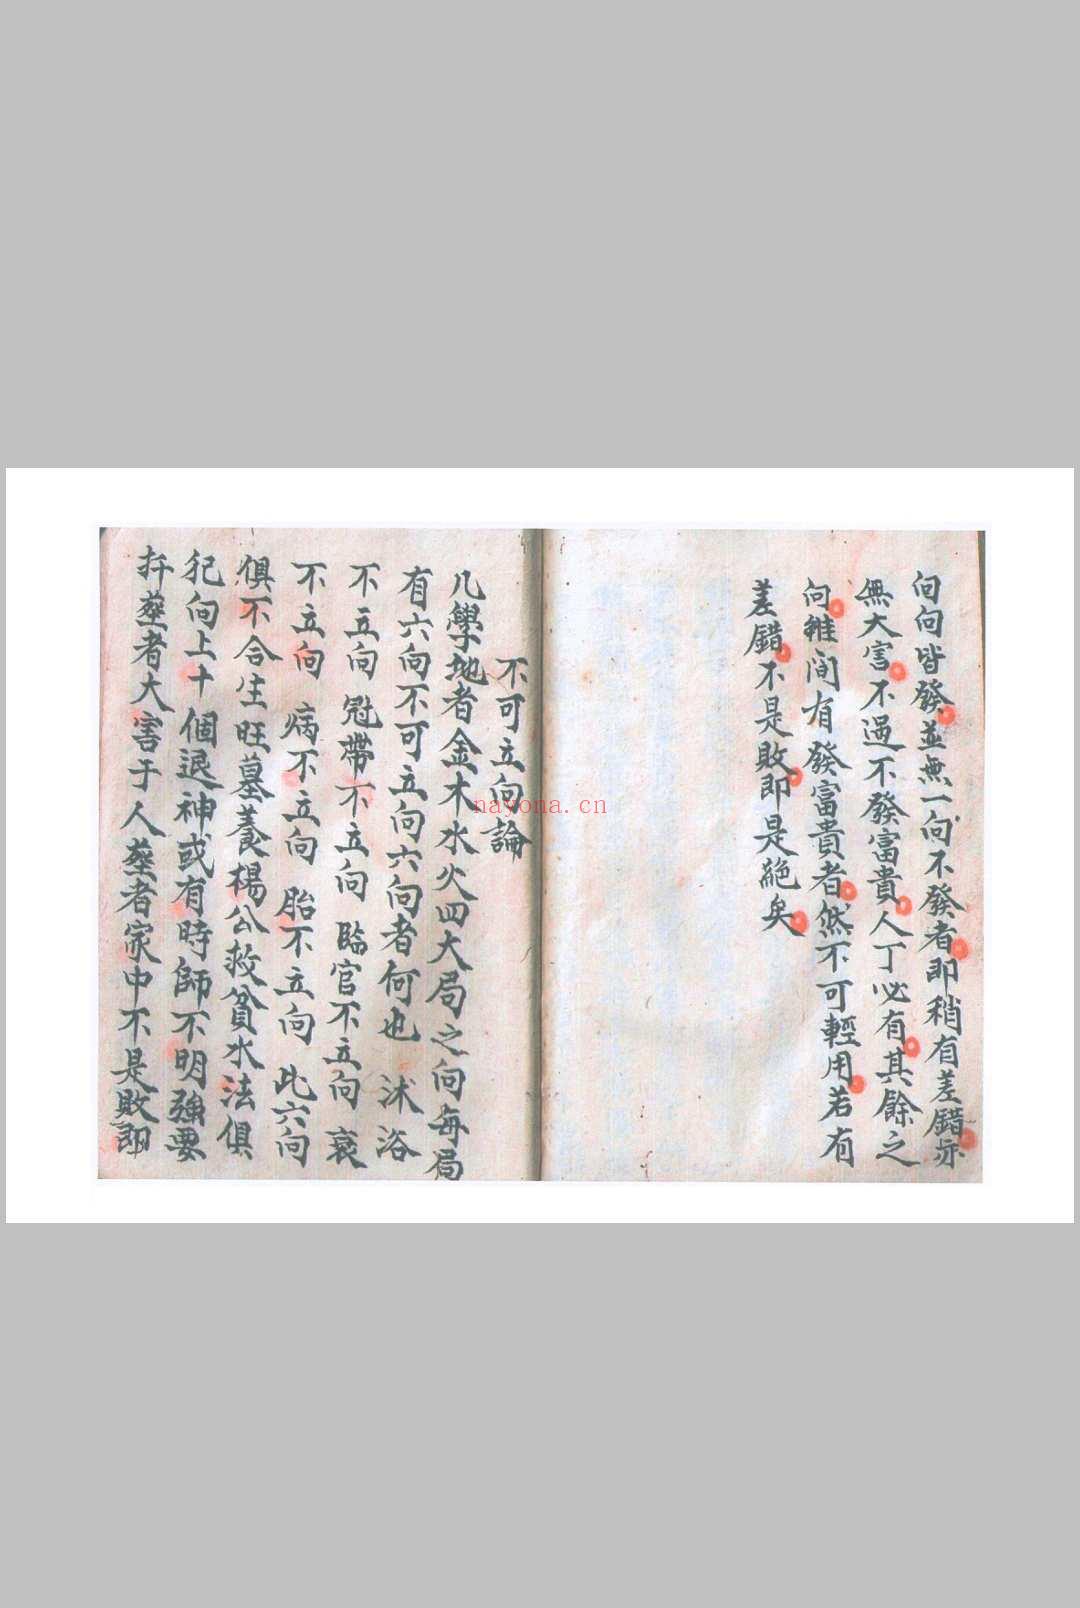 向向皆發並無一向不發者即稍有差錯亦
無大害不過不發富貴人丁必有其餘之
向雖間有發富貴者然不可輕用若有
差錯不是敗即是絕矣
不可立向論
凡學地者金木水火四大局之向每局
有六向不可立向六向者何也沐浴
不立向冠帶不立向臨官不立向衰
不立向病不立向胎不立向此六向
俱不合生旺墓養楊公救貧水法俱
犯向上十個退神或有時師不明強要
扦葬者大害于人葬者家中不是敗即
nayona.cn